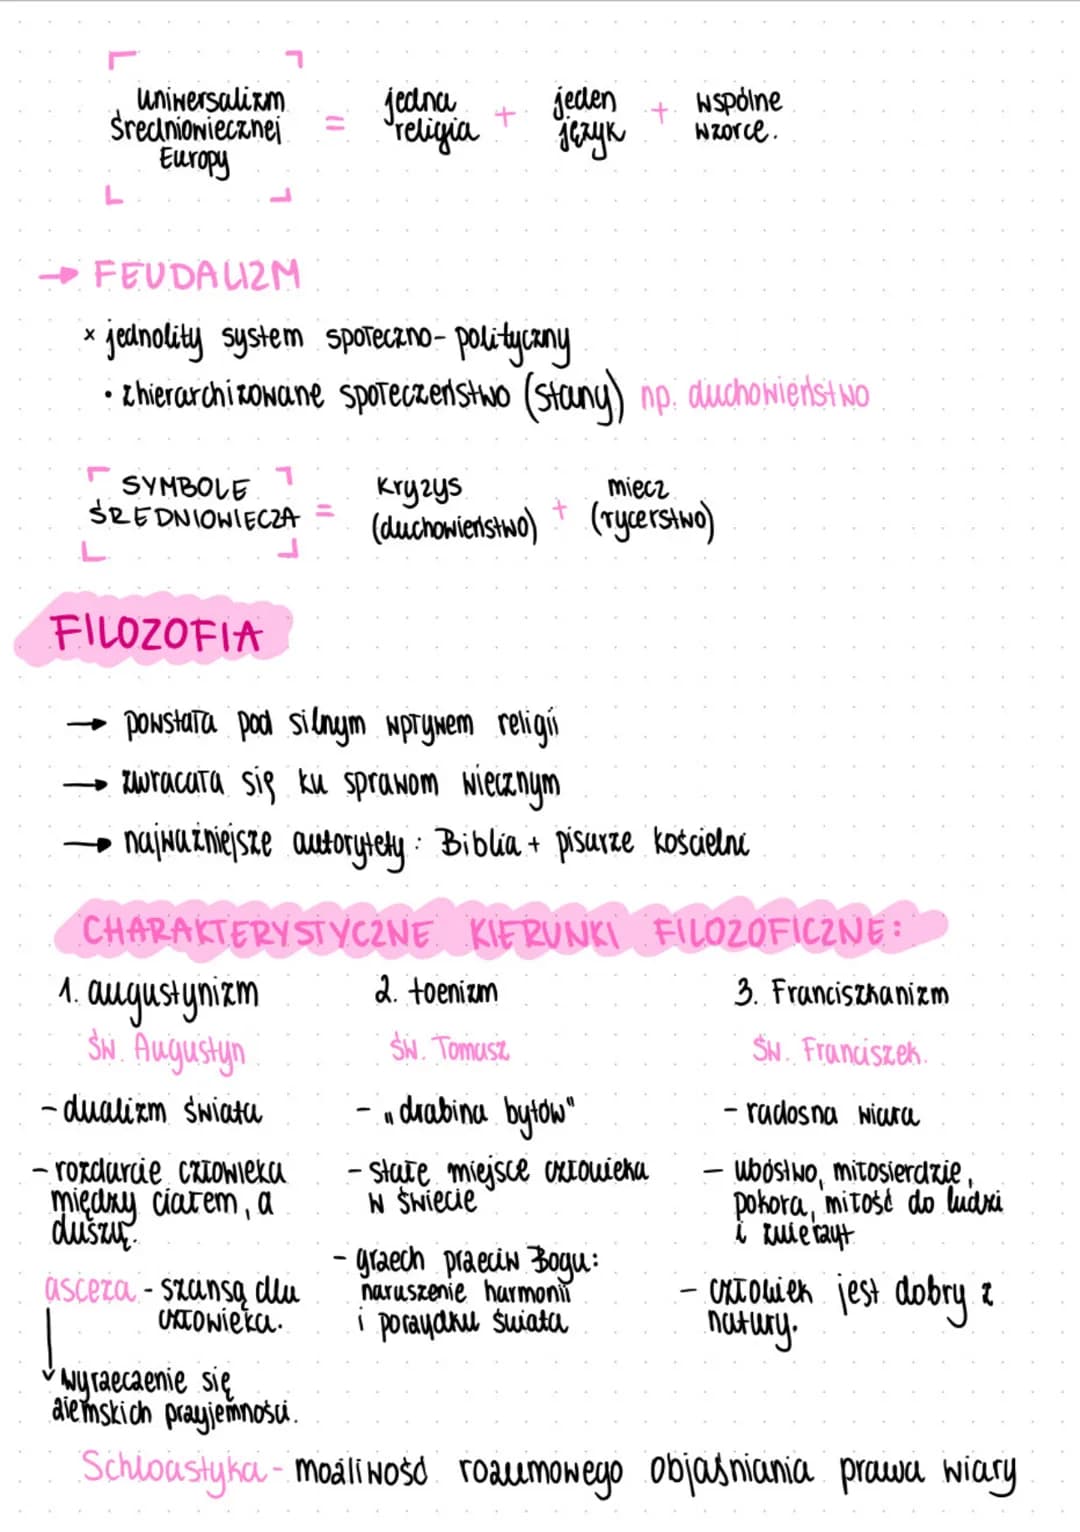 uniwersalizm
średniowiecznej
Europy
=
jedna
religia
+
jeden
język
+
wspólne
wzorce.
→ FEUDALIZM
x jednolity system społeczno-polityczny
• zhierarchizowane społeczeństwo (stany) np. duchowieństwo
SYMBOLE
ŚREDNIOWIECZA
=
Kryzys
(duchowieństwo)
+
miecz
(rycerstwo)
FILOZOFIA
→ powstała pod silnym wpływem religii
→ zwracała się ku sprawom wiecznym
→ najważniejsze autorytety: Biblia + pisarze kościelni
CHARAKTERYSTYCZNE KIERUNKI FILOZOFICZNE:
1. augustynizm
św. Augustyn
- dualizm świata
- rozdarcie człowieka
między ciałem, a
duszą.
asceza - szansą dla
człowieka.
wyrzeczenie się
ziemskich przyjemności.
2. toenizm
św. Tomasz
- „drabina bytów"
- stałe miejsce człowieka
w świecie
- grzech przeciw Bogu:
naruszenie harmonii
i porządku świata
3. Franciszkanizm
św. Franciszek.
- radosna wiara
- ubóstwo, miłosierdzie,
pokora, miłość do ludzi
i zwierząt
- człowiek jest dobry z
natury.
Schloastyka - możliwość rozumowego objaśniania prawa wiary